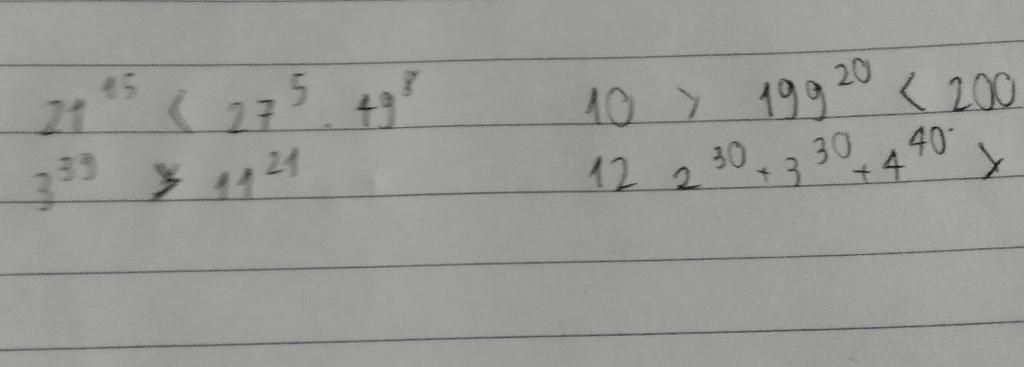 21^15 < 27^5 . 49^8 10 > 199^20 < 200
3^39 > 11^21 12 2^30 + 3^30 + 4^40 >